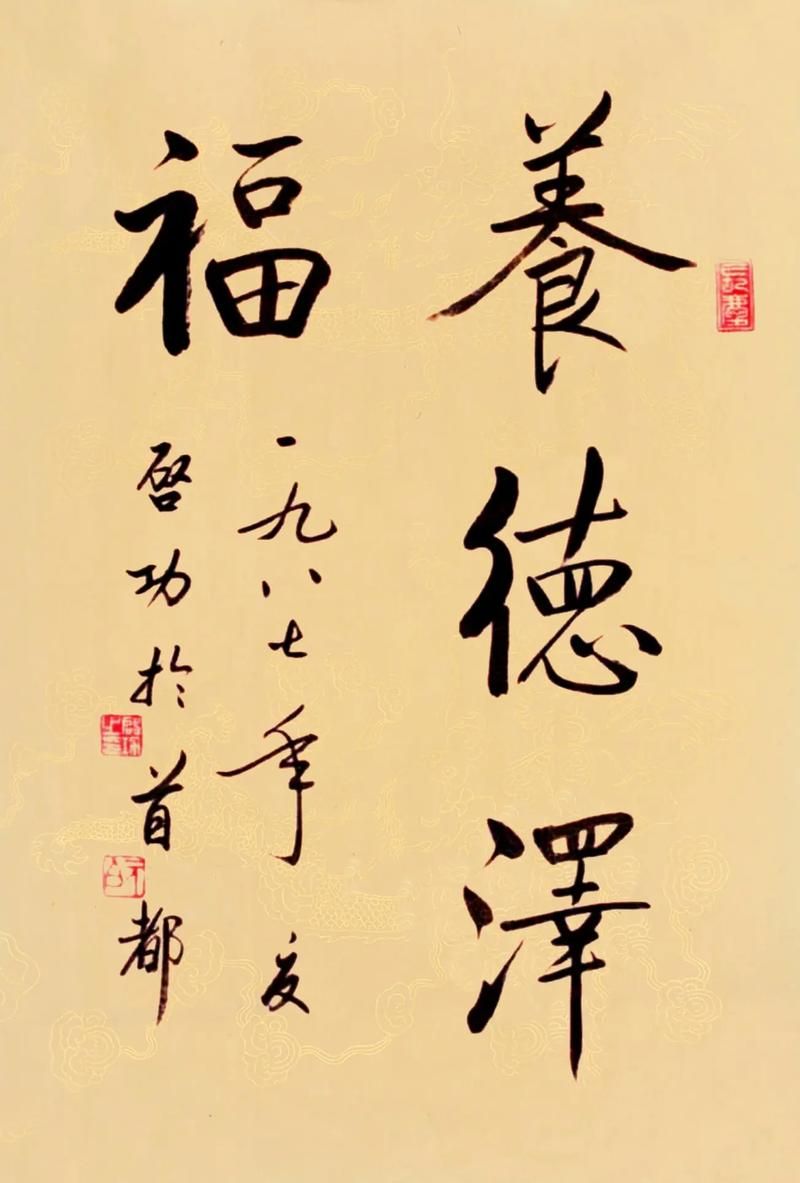 養德澤
福
一九八七年夏
启功於首都